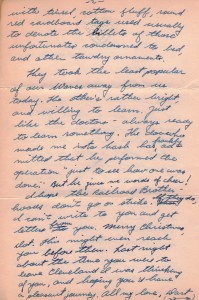 -2-
with tinsel cotton fluff, round
red cardboard tags used usually
to denote the billets of those
unfortunates condemned to bed
and other tawdry ornaments.
They took the least popular
of our Waves away from us
today. The others rather bright
and willing to learn. Just
like the doctor - always ready
to learn something. He
made me into hash but, ad-
mitted that he performed the
operation just to see how it was
done. But he give me words of cheer!
I hope the Railroad Brother-
hoods don't go on strike. If they do
I can't write to you and get
letters from you. Merry Christmas,
dot, this might even reach
you before then. Last night
about the time you were to
leave Cleveland I was thinking
of you, and hoping you'd have
a pleasant journey. All my love,